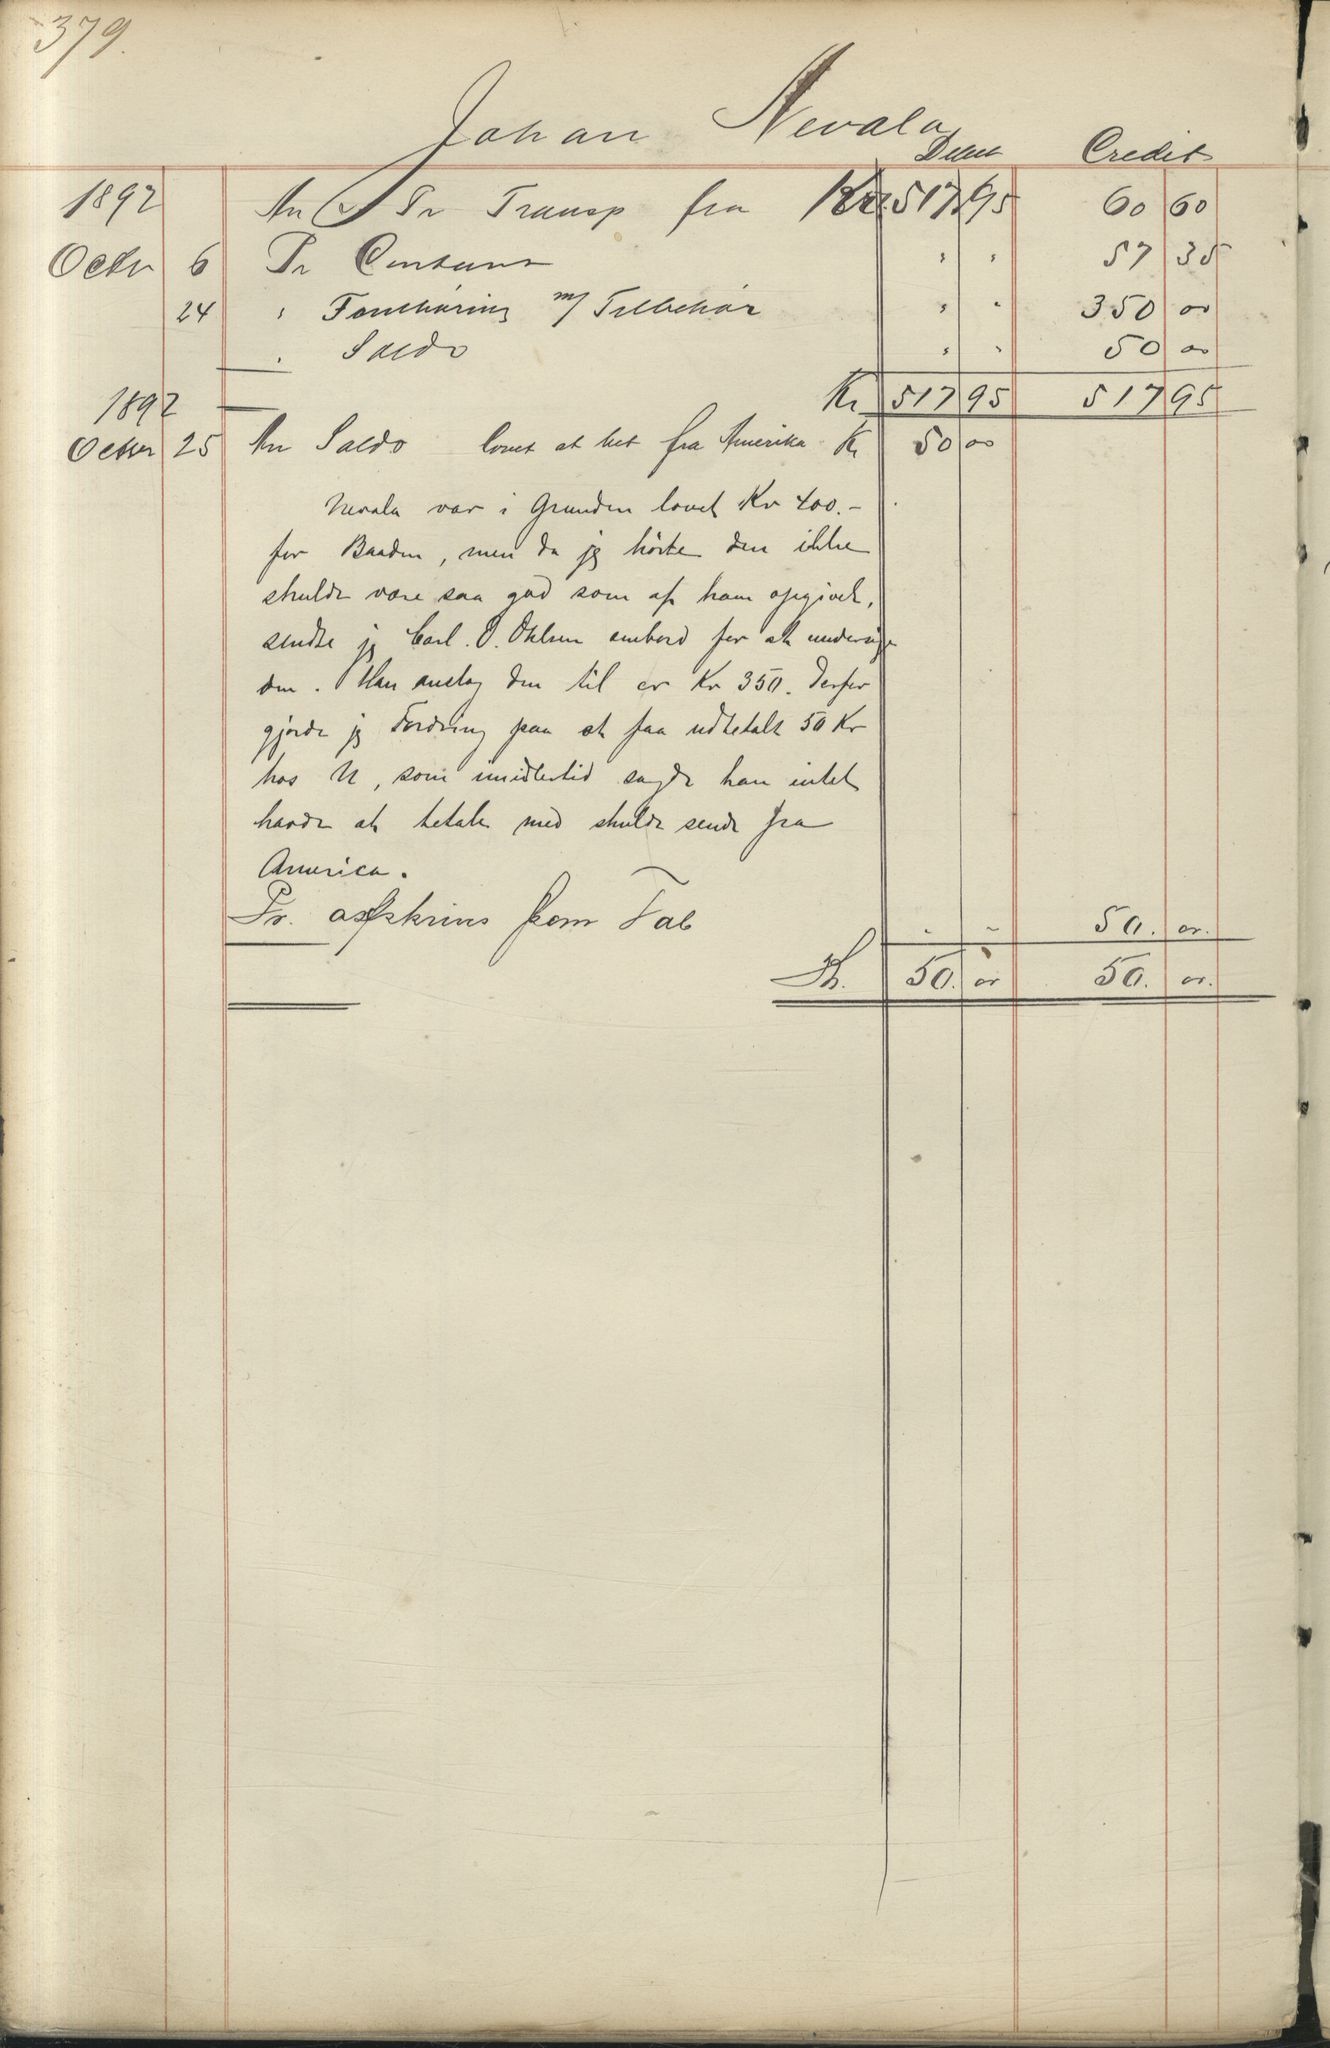 379.
Johan Nevala
Debet Credit
1892 An & Pr Transp fra Kr. 517 95 60 60
Octbr 6 Pr Contant " " 57 35
24 " Femthøring m/ Tilbehør " " 350 00
" Saldo " " 50 00
Kr 517 95 517 95
1892
Octbr 25 An Saldo lovet at bet fra Amerika Kr 50 00
Nevala var i Grunden lovet Kr 400.-
for Baaden, men da jeg hörte den ikke
skulde være saa god som af ham opgivet,
sendte jeg Carl. O. Ohlsen ombord for at undersøge
den. Han anslog den til cr Kr 350. Derfor
gjorde jeg Fordring paa at faa udbetalt 50 Kr
hos N, som imidlertid sagde han intet
havde at betale med skulde sende fra
America.
Pr. afskrives som Tab " " 50. 00.
Kr. 50. 00 50. 00.